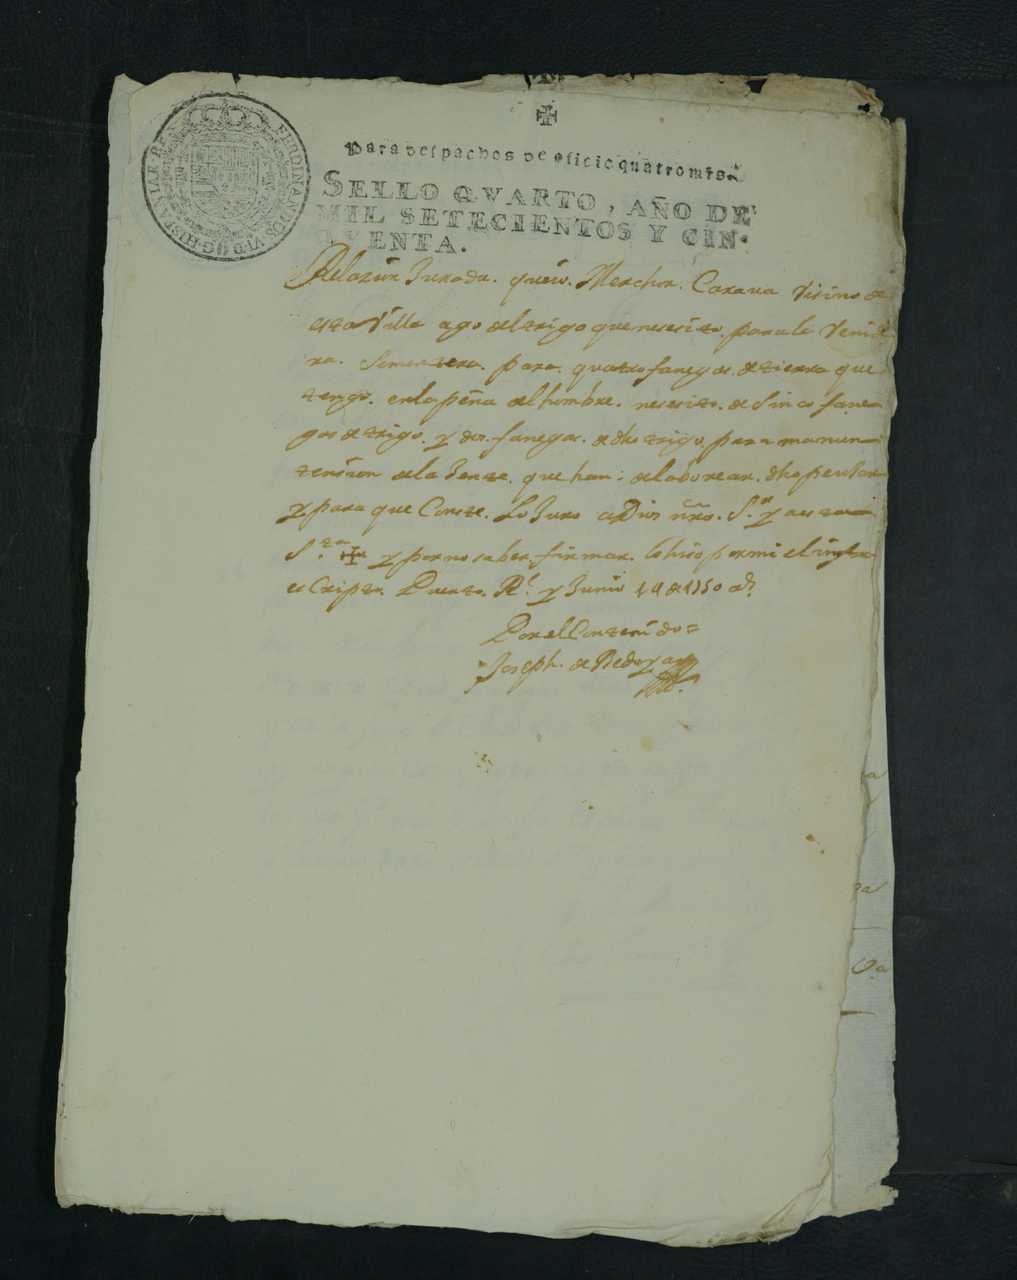 FERDINANDUS VI D G HISPANIAR REX
Para despachos de oficio quatro mrs
SELLO QVARTO, AÑO DE
MIL SETECIENTOS Y CIN-
QVENTA.
Relazion Jurada. queio. Merchor. Carava Visino de
esta Villa ago del trigo que nesesito. para la Veni
ra. Sementera. para. quatro fanegas. de tierra que
tengo. enla peña del hombre. nesesito. de Sinco fane
gas de trigo. y dos. fanegas. de dho trigo. para manun
tension dela Jente. que han. de laborear. dho
y para que Conste. Lo Juro a Dios nro. S.r y a esta
S.ta ✠ y por no saber. firmar. lo hiso por mi el
es Cripto. Puerto. Rl. y Junio de 1750 as
Por el Contenido=
Joseph. de Bedoya